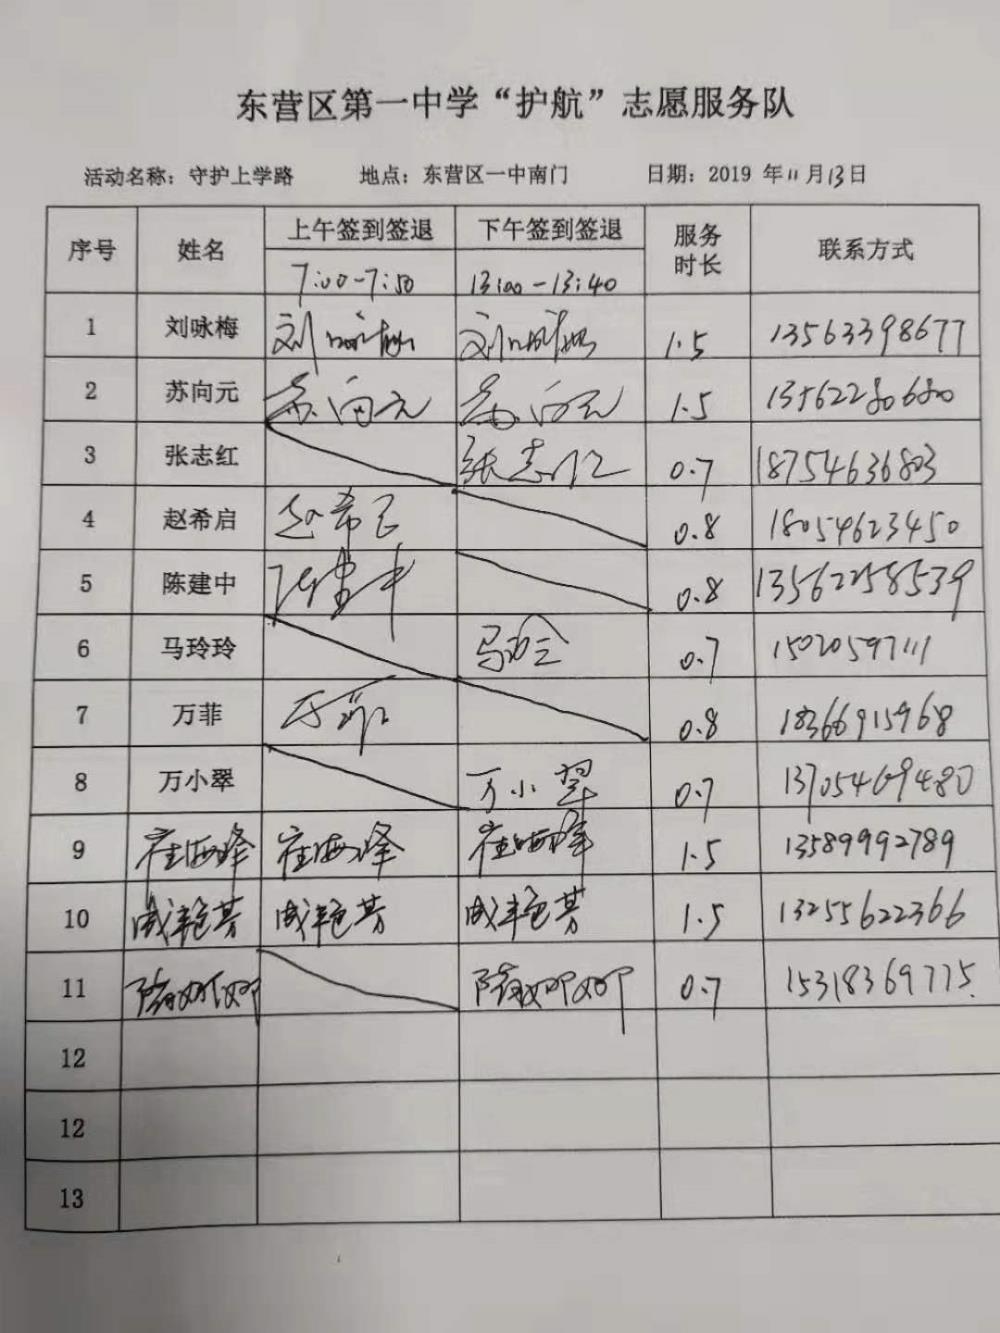 东营区第一中学“护航”志愿服务队
活动名称：守护上学路 地点：东营区一中南门 日期：2019 年11月13日
序号 姓名 上午签到签退 下午签到签退 服务时长 联系方式
7:00-7:50 13:00-13:40
1 刘咏梅 刘咏梅 刘咏梅 1.5 13563398677
2 苏向元 苏向元 苏向元 1.5 13562280680
3 张志红 张志红 0.7 18754636803
4 赵希启 赵希启 0.8 18054623450
5 陈建中 陈建中 0.8 13562258539
6 马玲玲 马玲玲 0.7 15020597111
7 万菲 万菲 0.8 18366915968
8 万小翠 万小翠 0.7 13705469480
9 崔海峰 崔海峰 崔海峰 1.5 13589992789
10 成艳芳 成艳芳 成艳芳 1.5 13255622366
11 0.7 15318369775
12
12
13